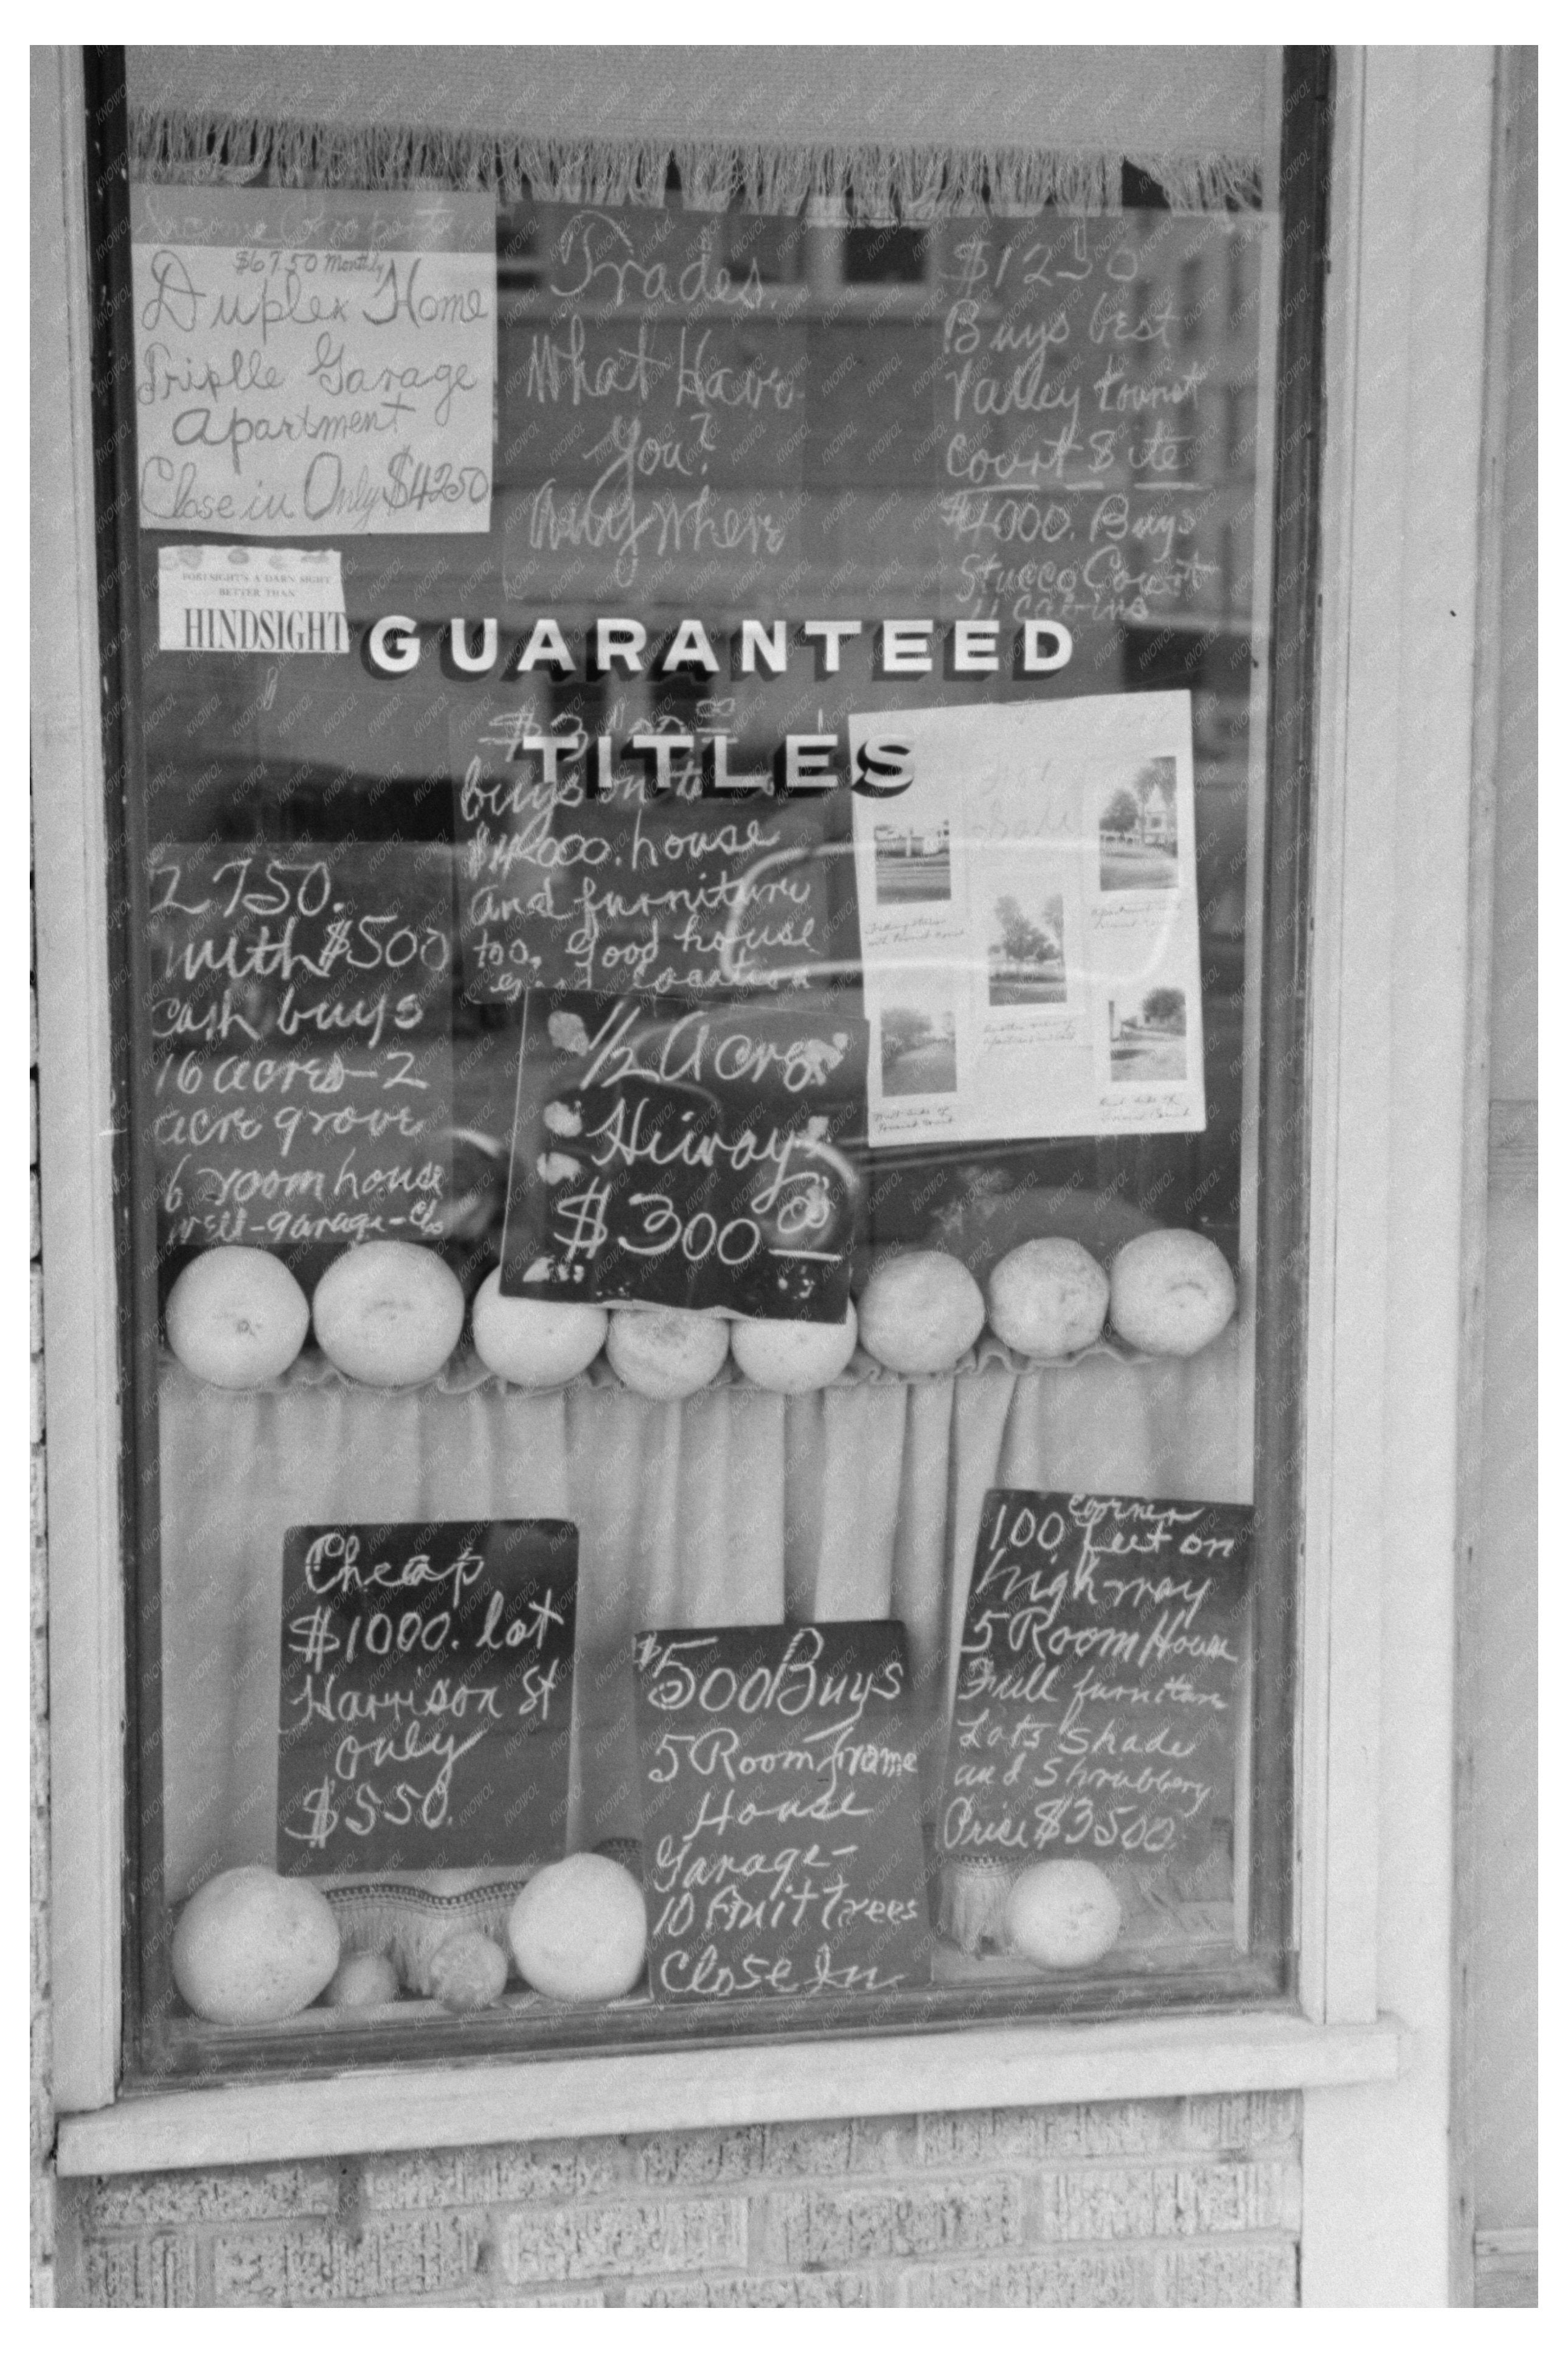 Income Property
$67.50 Monthly
Duplex Home
Triplle Garage
apartment
Close in Only $4250
Trades.
What Have
you?
Anywhere
$1250
Buys best
Valley tourist
Court Site
$4000. Buys
Stucco Court
11 Cabins
FORESIGHT'S A DARN SIGHT
BETTER THAN
HINDSIGHT
GUARANTEED
TITLES
buys
house
and furniture
too, Good house
good location
2750.
with $500
cash buys
16 acres-2
acre grove
6 room house
well-garage-
1/2 Acre
Hiway
$300
For
Sale
Cheap
$1000. lot
Harrison St
only
$550.
$500 Buys
5 Room frame
House
Garage-
10 Fruit Trees
Close In
corner
100 feet on
highway
5 Room House
Full furniture
Lots Shade
and Shrubbery
Price $3500.